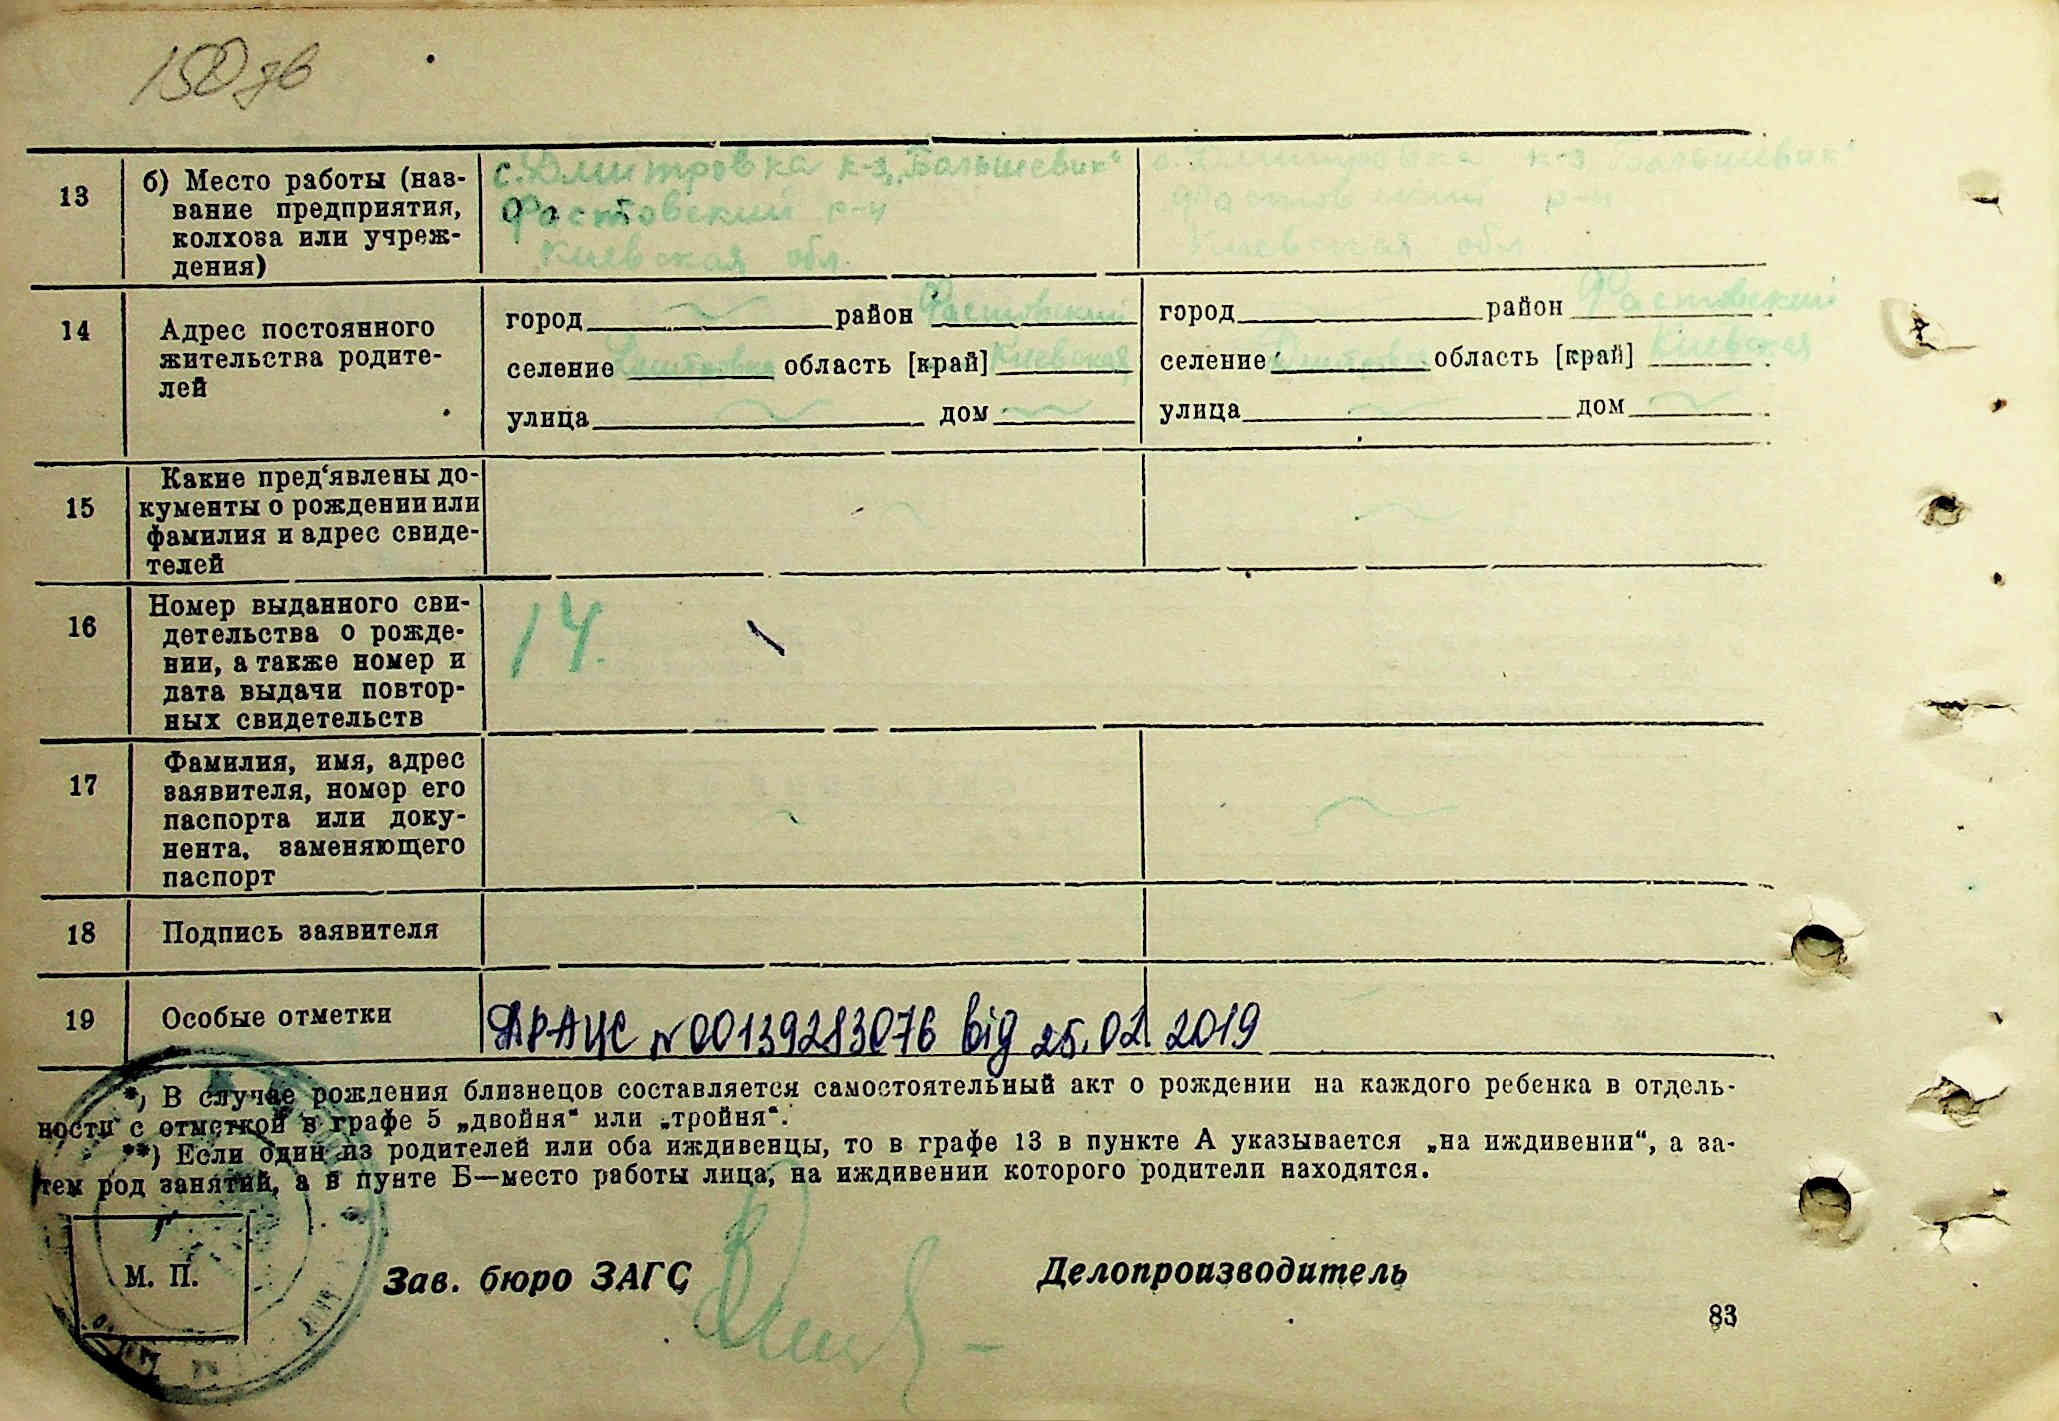 150 зв
13
б) Место работы (наз-
вание предприятия,
колхоза или учреж-
дения)
с. Дмитровка к-з „Большевик“
Фастовский р-н
Киевская обл.
с. Дмитровка к-з „Большевик“
Фастовский р-н
Киевская обл.
14
Адрес постоянного
жительства родите-
лей
город район Фастовский
селение Дмитровка область [край] Киевская
улица дом
город район Фастовский
селение Дмитровка область [край] Киевская
улица дом
15
Какие пред‘явлены до-
кументы о рождении или
фамилия и адрес свиде-
телей
16
Номер выданного сви-
детельства о рожде-
нии, а также номер и
дата выдачи повтор-
ных свидетельств
14.
17
Фамилия, имя, адрес
заявителя, номер его
паспорта или доку-
мента, заменяющего
паспорт
18
Подпись заявителя
19
Особые отметки
ДРАЦС № 00139283076 від 25.02 2019
*) В случае рождения близнецов составляется самостоятельный акт о рождении на каждого ребенка в отдель-
ности с отметкой в графе 5 „двойня“ или „тройня“.
**) Если один из родителей или оба иждивенцы, то в графе 13 в пункте А указывается „на иждивении“, а за-
тем род занятий, а в пунте Б—место работы лица, на иждивении которого родители находятся.
М. П.
Зав. бюро ЗАГС
Делопроизводитель
83